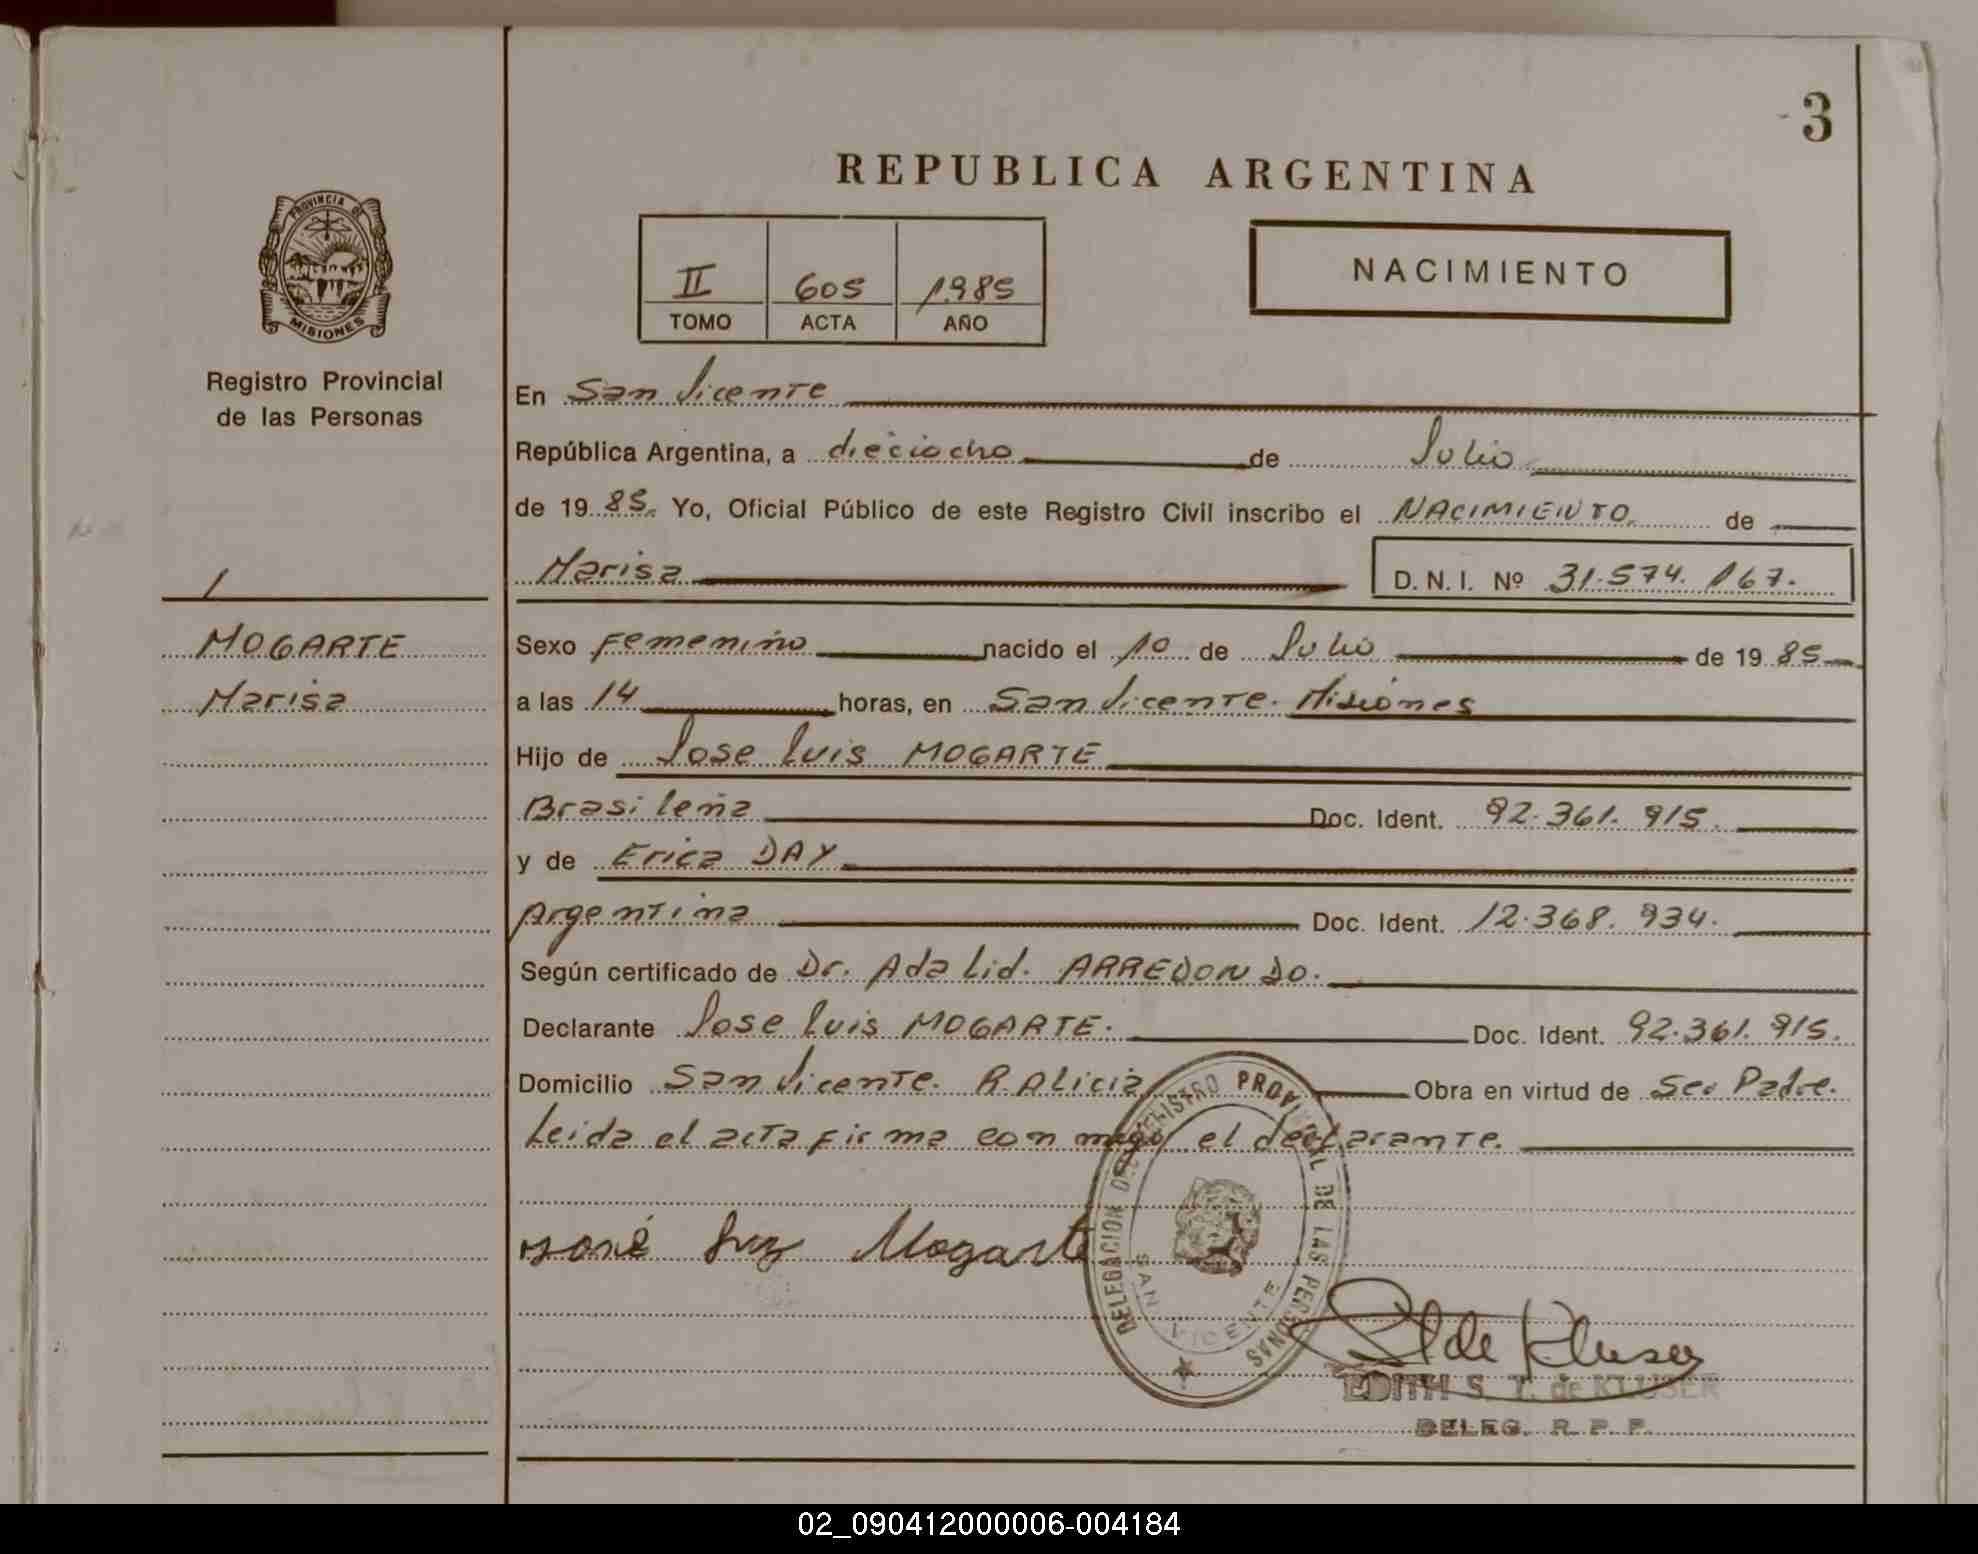 3
REPUBLICA ARGENTINA
PROVINCIA DE
MISIONES
Registro Provincial
de las Personas
II 605 1985
TOMO ACTA AÑO
NACIMIENTO
En San Vicente
República Argentina, a dieciocho de Julio
de 19 85. Yo, Oficial Público de este Registro Civil inscribo el NACIMIENTO de
Marisa D.N.I. Nº 31.574.167.
MOGARTE
Marisa
Sexo Femenino nacido el 10 de Julio de 19 85
a las 14 horas, en San Vicente. Misiones
Hijo de Jose Luis MOGARTE
Brasileña Doc. Ident. 92.361.915.
y de Erica DAY
Argentina Doc. Ident. 12.368.934.
Según certificado de Dr. Adalid. ARREDONDO.
Declarante Jose Luis MOGARTE. Doc. Ident. 92.361.915.
Domicilio San Vicente. R. Alicia Obra en virtud de Ser Padre.
Leida el acta firma con migo el declarante.
José Luiz Mogarte
DELEGACION DEL REGISTRO PROVINCIAL DE LAS PERSONAS
SAN VICENTE
de Kluser
EDITH S. T. de KLUSER
DELEG. R. P. P.
02_090412000006-004184